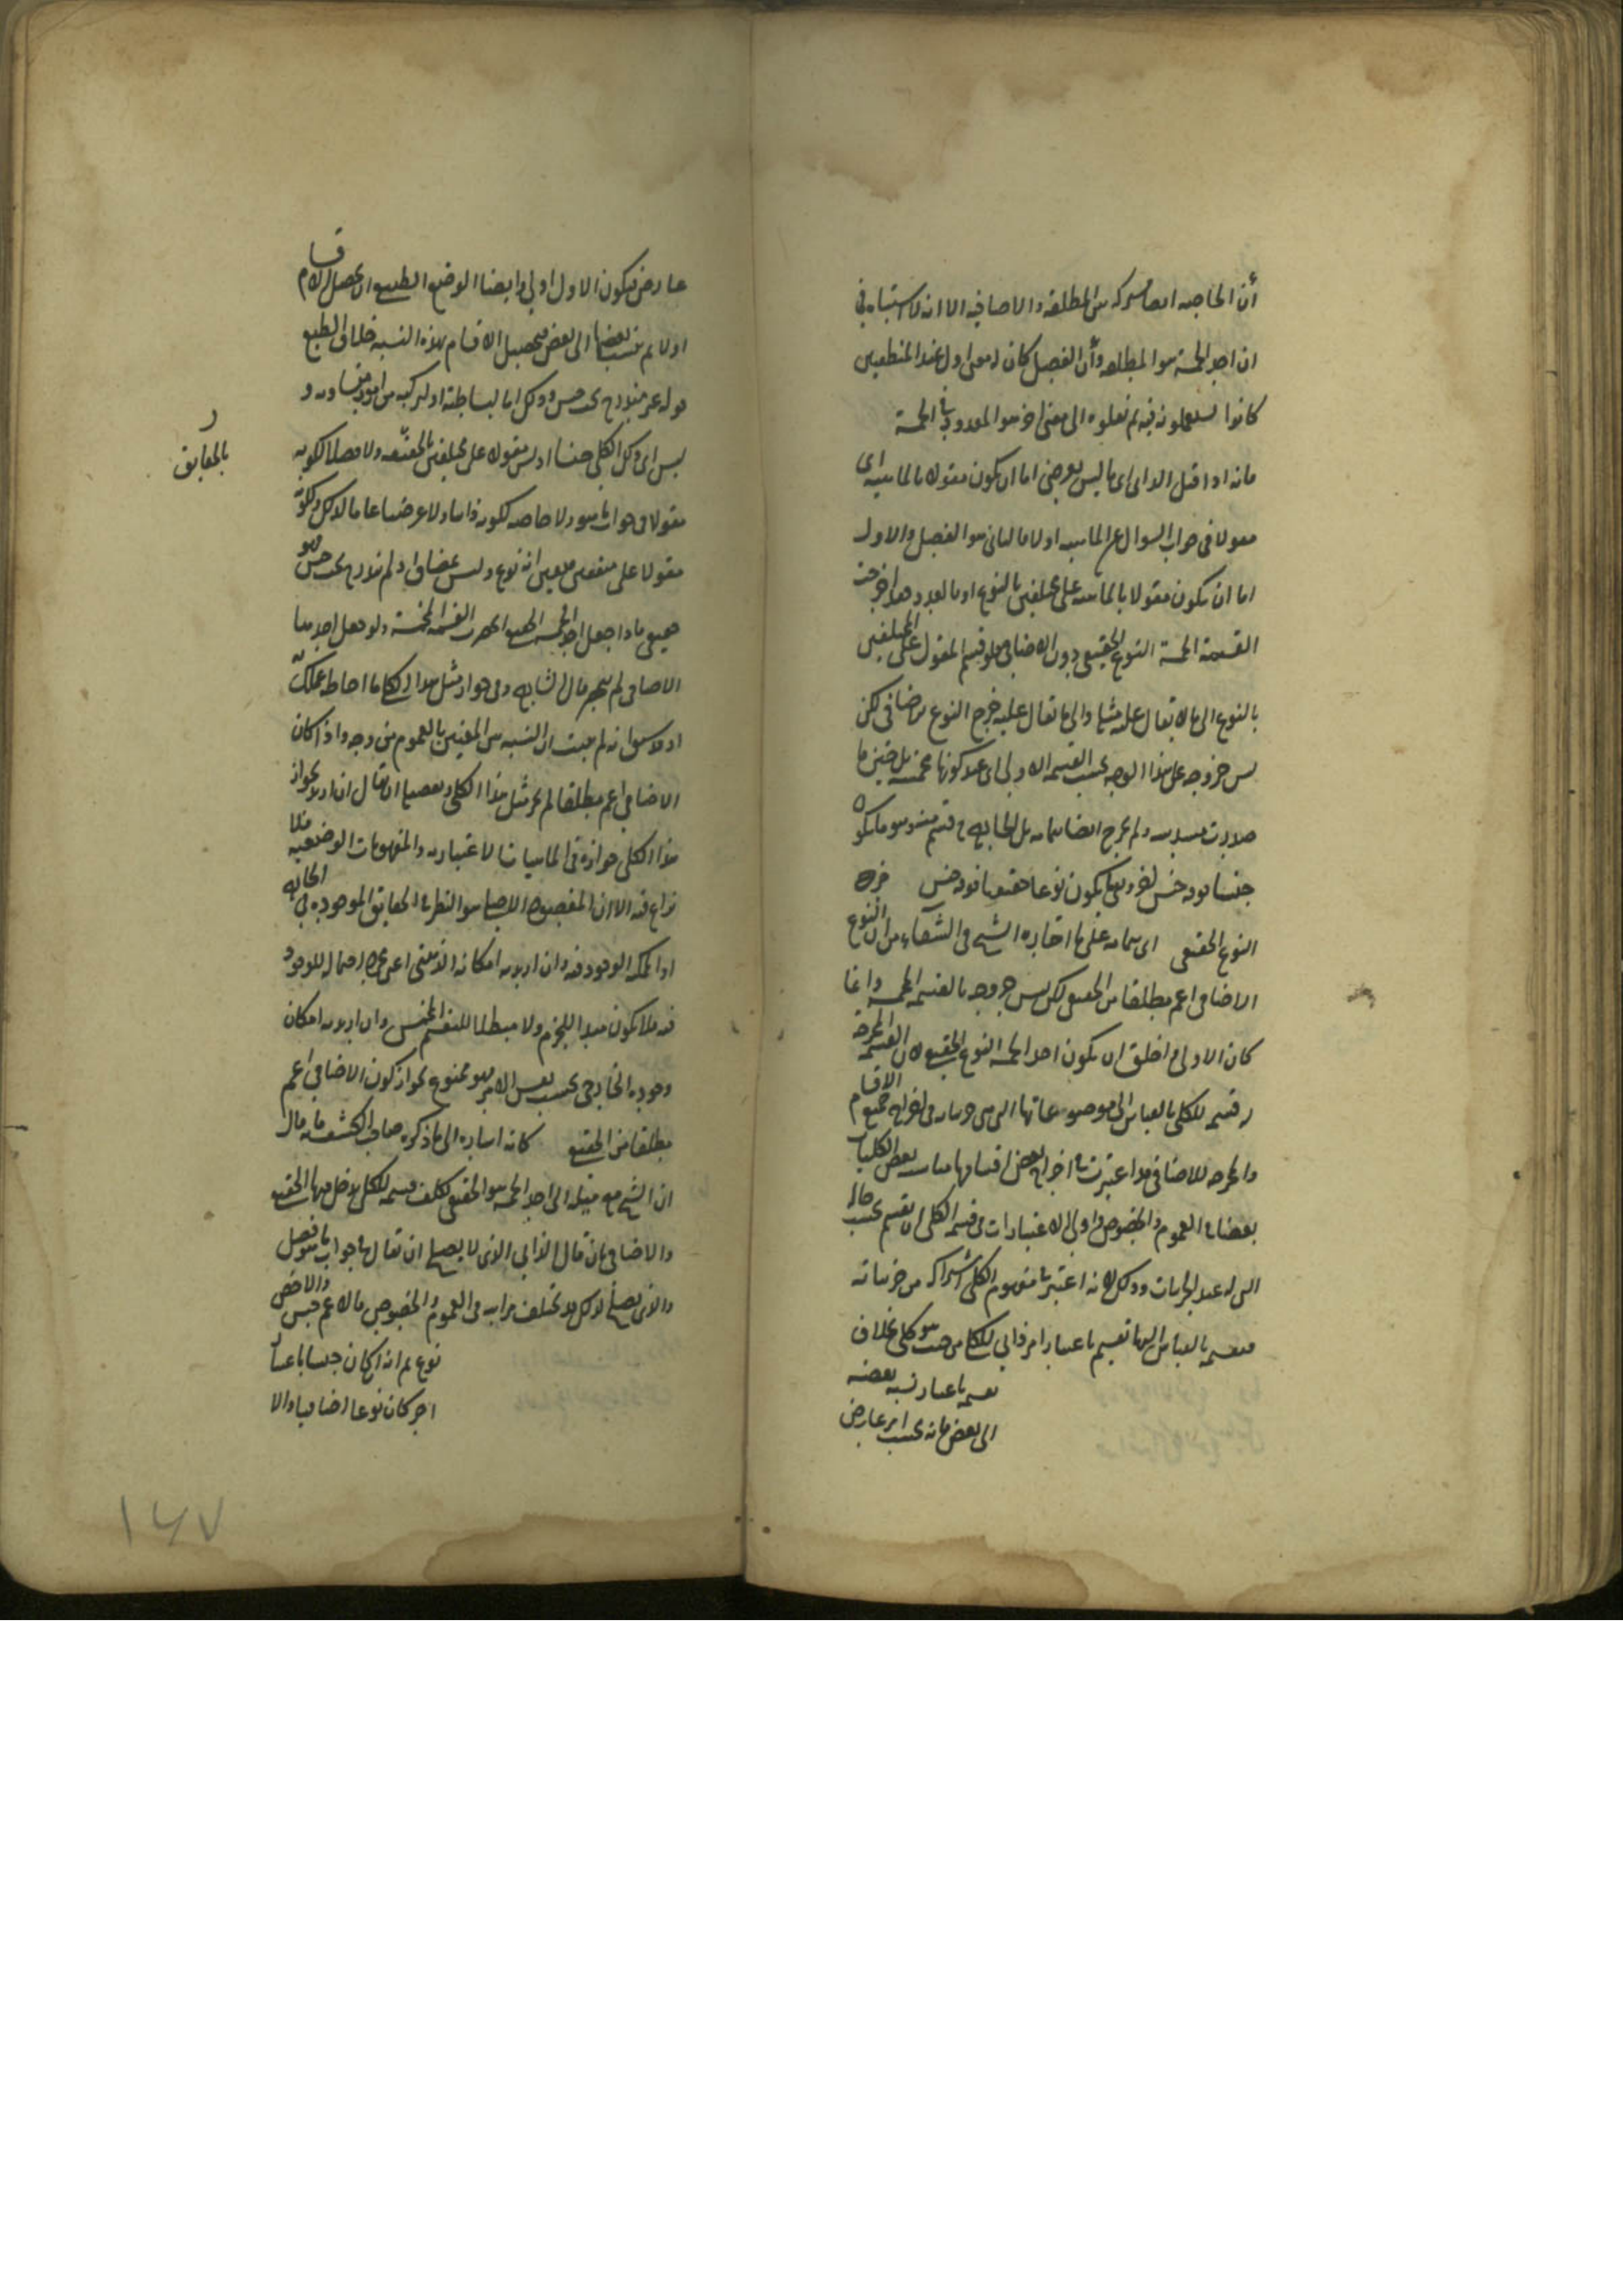 أن الخاصة ايضا مشتركة بين المطلقة والاضافية الا انه لا اشتباه في
ان احد الخمسة هو المطلقة وأن الفصل كان له معنى اول عند المنطقيين
كانوا يستعملونه فيه ثم نقلوه الى معنى اخر هو المعدود في الخمسة
فانه اذا قيل الذاتي اي ما ليس بعرضي اما ان يكون مقولا بالماهية اي
مقولا في جواب السوال عن الماهية اولا فالثاني هو الفصل والاول
اما ان يكون مقولا بالماهية على مختلفين بالنوع او بالعدد فقد اخرجت
القسمة الخمسة النوع الحقيقي دون الاضافي فلو قسم المقول على المختلفين
بالنوع الى ما لا يقال عليه مثلها والى ما يقال عليه خرج النوع الاضافي لكن
ليس خروجه على هذا الوجه بحسب القسمة الاولى اي عند كونها مخمسة بل حين ما
صارت مسدسة ولم يخرج ايضا بتمامه بل الخارج قسم منه وهو ما يكون
جنسا فوقه جنس اخر وبقي ما يكون نوعا حقيقيا فوقه جنس
النوع الحقيقي اي بتمامه على ما اختاره الشيخ في الشفاء من ان النوع
الاضافي اعم مطلقا من الحقيقي لكن ليس خروجه بالقسمة المخمسة وانما
كان الاولى اخلق ان يكون احد الخمسة النوع الحقيقي لان القسمة المخرجة
له قسمة للكلي بالقياس الى موضوعاتها التي هي جزئياته في اخراج جميع الاقسام
والمخرجة للاضافي قد اعتبرت في اخراج بعض اقسامها مناسبة بعض الكليات
بعضا في العموم والخصوص واولى الاعتبارات في قسمة الكلي ان يقسم بحسب حاله
التي له عند الجزئيات وذلك لانه اعتبر في مفهوم الكلي اشتراكه بين جزئياته
فتقسيمه بالقياس اليها تقسيم باعتبار امر ذاتي للكلي من حيث هو كلي بخلاف
تقسيمه باعتبار نسبة بعضه
الى بعض فانه بحسب امر عارض
عارض فيكون الاول اولى وايضا الوضع الطبيعي ان يحصل الاقسام
اولا ثم ينسب بعضها الى بعض فتحصيل الاقسام بهذه النسبة خلاف الطبع
قوله غير مندرج تحت جنس وذلك اما لبساطته او لتركبه من امور متساوية و
ليس اي ذلك الكلي جنسا اذ ليس مقولا على مختلفين بالحقيقة ولا فصلا لكونه
مقولا في جواب ما هو ولا خاصة لكونه ذاتيا ولا عرضيا عاما لذلك ولكونه
مقولا على متفقين فتعين انه نوع وليس بمضاف اذ لم يندرج تحت جنس فهو
حقيقي فاذا جعل احد الخمسة الحقيقي انحصرت القسمة المخمسة ولو جعل احدها
الاضافي لم ينحصر قال الشارح وفي جواز مثل هذا الكلي ما احاط علمك
اذ قد سبق انه لم يثبت ان النسبة بين المعنيين بالعموم من وجه واذا كان
الاضافي اعم مطلقا لم يجز مثل هذا الكلي وتفصيله ان يقال ان اريد بجواز
هذا الكلي جوازه في الماهيات الاعتبارية والمفهومات الوضعية فلا
نزاع فيه الا ان المقصود الاصلي هو النظر في الحقايق الموجودة في الخارج
او الممكنة الوجود فيه وان اريد به امكانه الذهني اعني مجرد احتمال للوجود
فيه فلا يكون مفيدا للجزم ولا مبطلا للتقسيم المخمس وان اريد به امكان
وجوده الخارجي بحسب نفس الامر فهو ممنوع لجواز كون الاضافي اعم
مطلقا من الحقيقي كانه اشارة الى ما ذكره صاحب الكشف فانه قال
ان الشيخ مع ميله الى احد الخمسة هو الحقيقي تكلف قسمة للكلي يدخل فيها الحقيقي
والاضافي بان قال الذاتي الذي لا يصلح ان يقال في جواب ما هو فصل
والذي يصلح لذلك قد تختلف مراتبه في العموم والخصوص فالاعم جنس والاخص
نوع ثم انه ان كان جنسا باعتبار
اخر كان نوعا اضافيا والا
بالحقايق
١٤٧